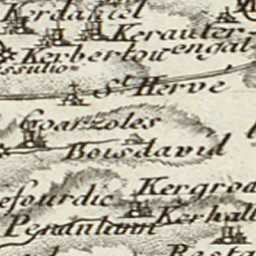 Kerdaniel
Kerauter
Kerbertou
engal
issulio
St. Hervé
Goarzoles
Boisdavid
efourdic
Kergroa
Kerhall
Pendulann